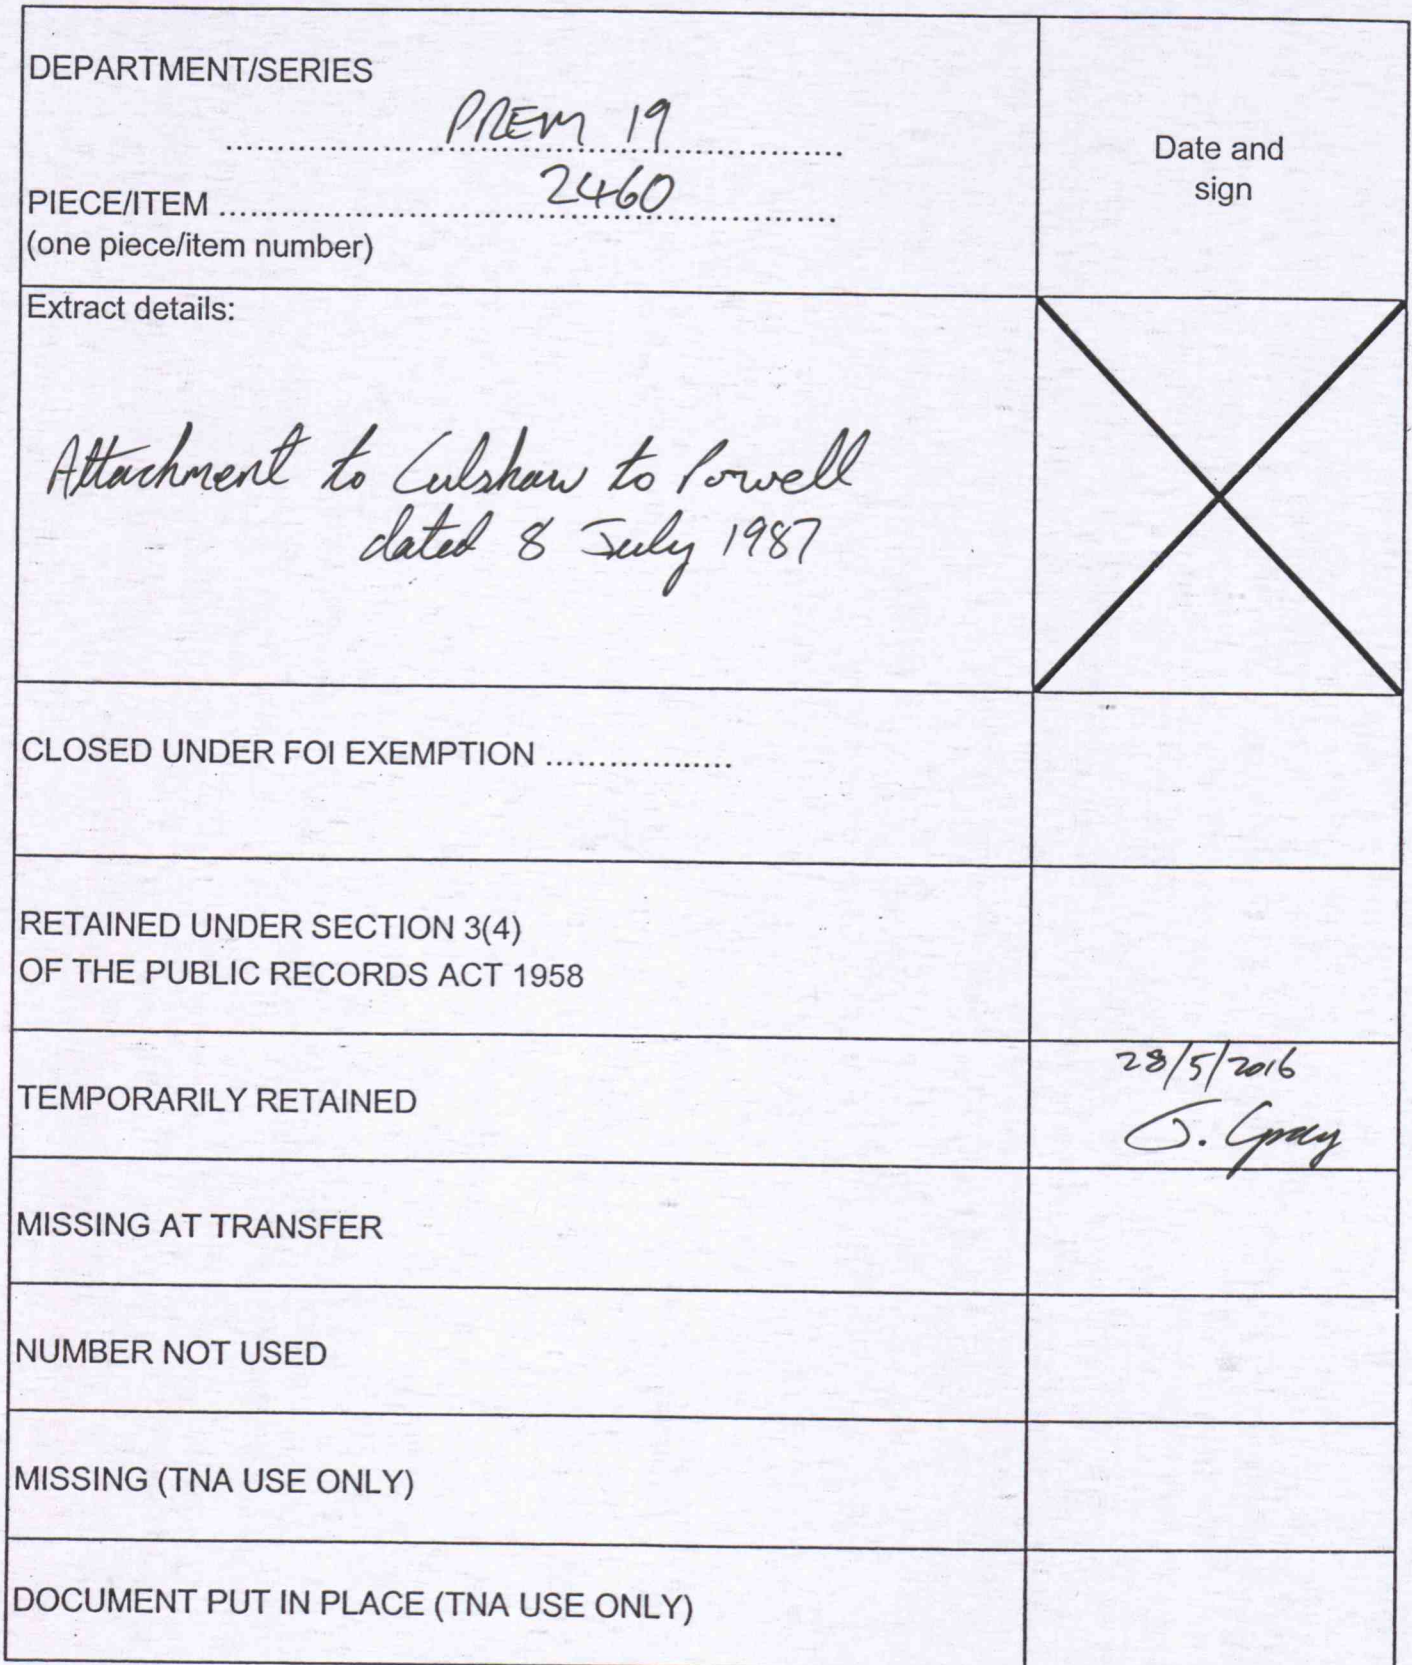 DEPARTMENT/SERIES
PREM 19
PIECE/ITEM 2460
(one piece/item number)
Date and
sign
Extract details:
Attachment to Culshaw to Powell
dated 8 July 1987
CLOSED UNDER FOI EXEMPTION
RETAINED UNDER SECTION 3(4)
OF THE PUBLIC RECORDS ACT 1958
TEMPORARILY RETAINED
28/5/2016
J. Gray
MISSING AT TRANSFER
NUMBER NOT USED
MISSING (TNA USE ONLY)
DOCUMENT PUT IN PLACE (TNA USE ONLY)